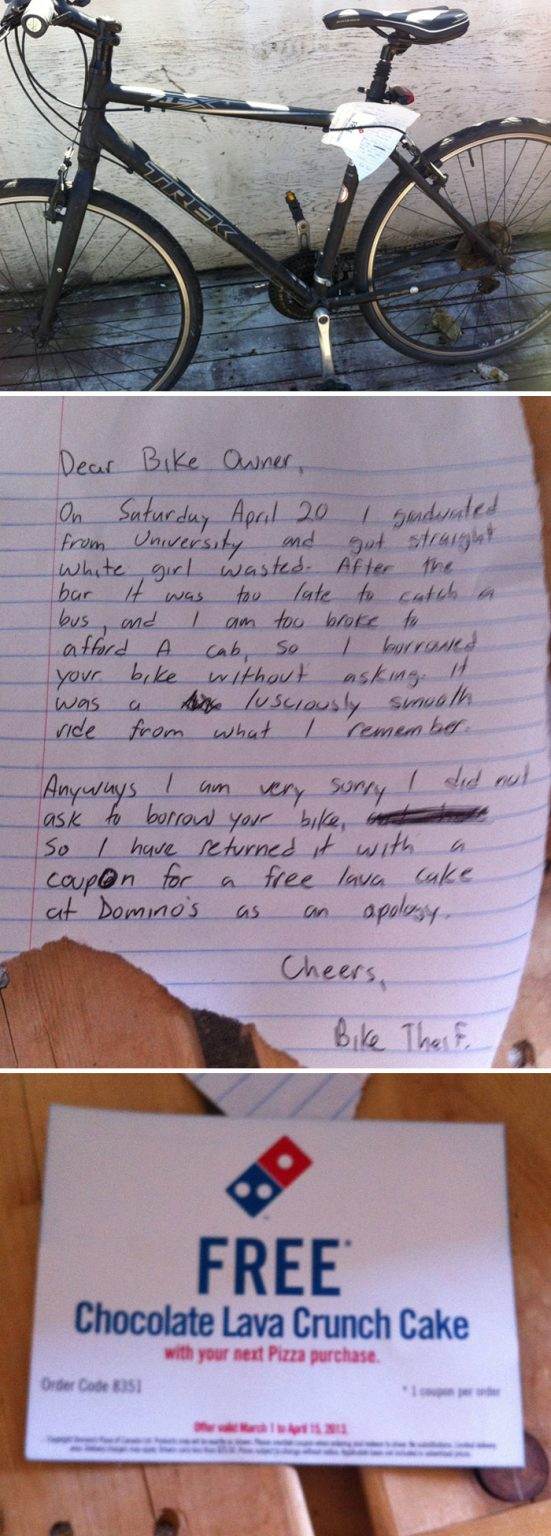 TREK
Dear Bike Owner,
On Saturday April 20 I graduated
from University and got straight
white girl wasted. After the
bar it was too late to catch a
bus, and I am too broke to
afford A cab, so I borrowed
your bike without asking. It
was a lusciously smooth
ride from what I remember.
Anyways I am very sorry I did not
ask to borrow your bike,
So I have returned it with a
coupon for a free lava cake
at Domino's as an apology.
Cheers,
Bike Theif.
FREE*
Chocolate Lava Crunch Cake
with your next Pizza purchase.
Order Code 8351
* 1 coupon per order
Offer valid March 1 to April 15, 2013.